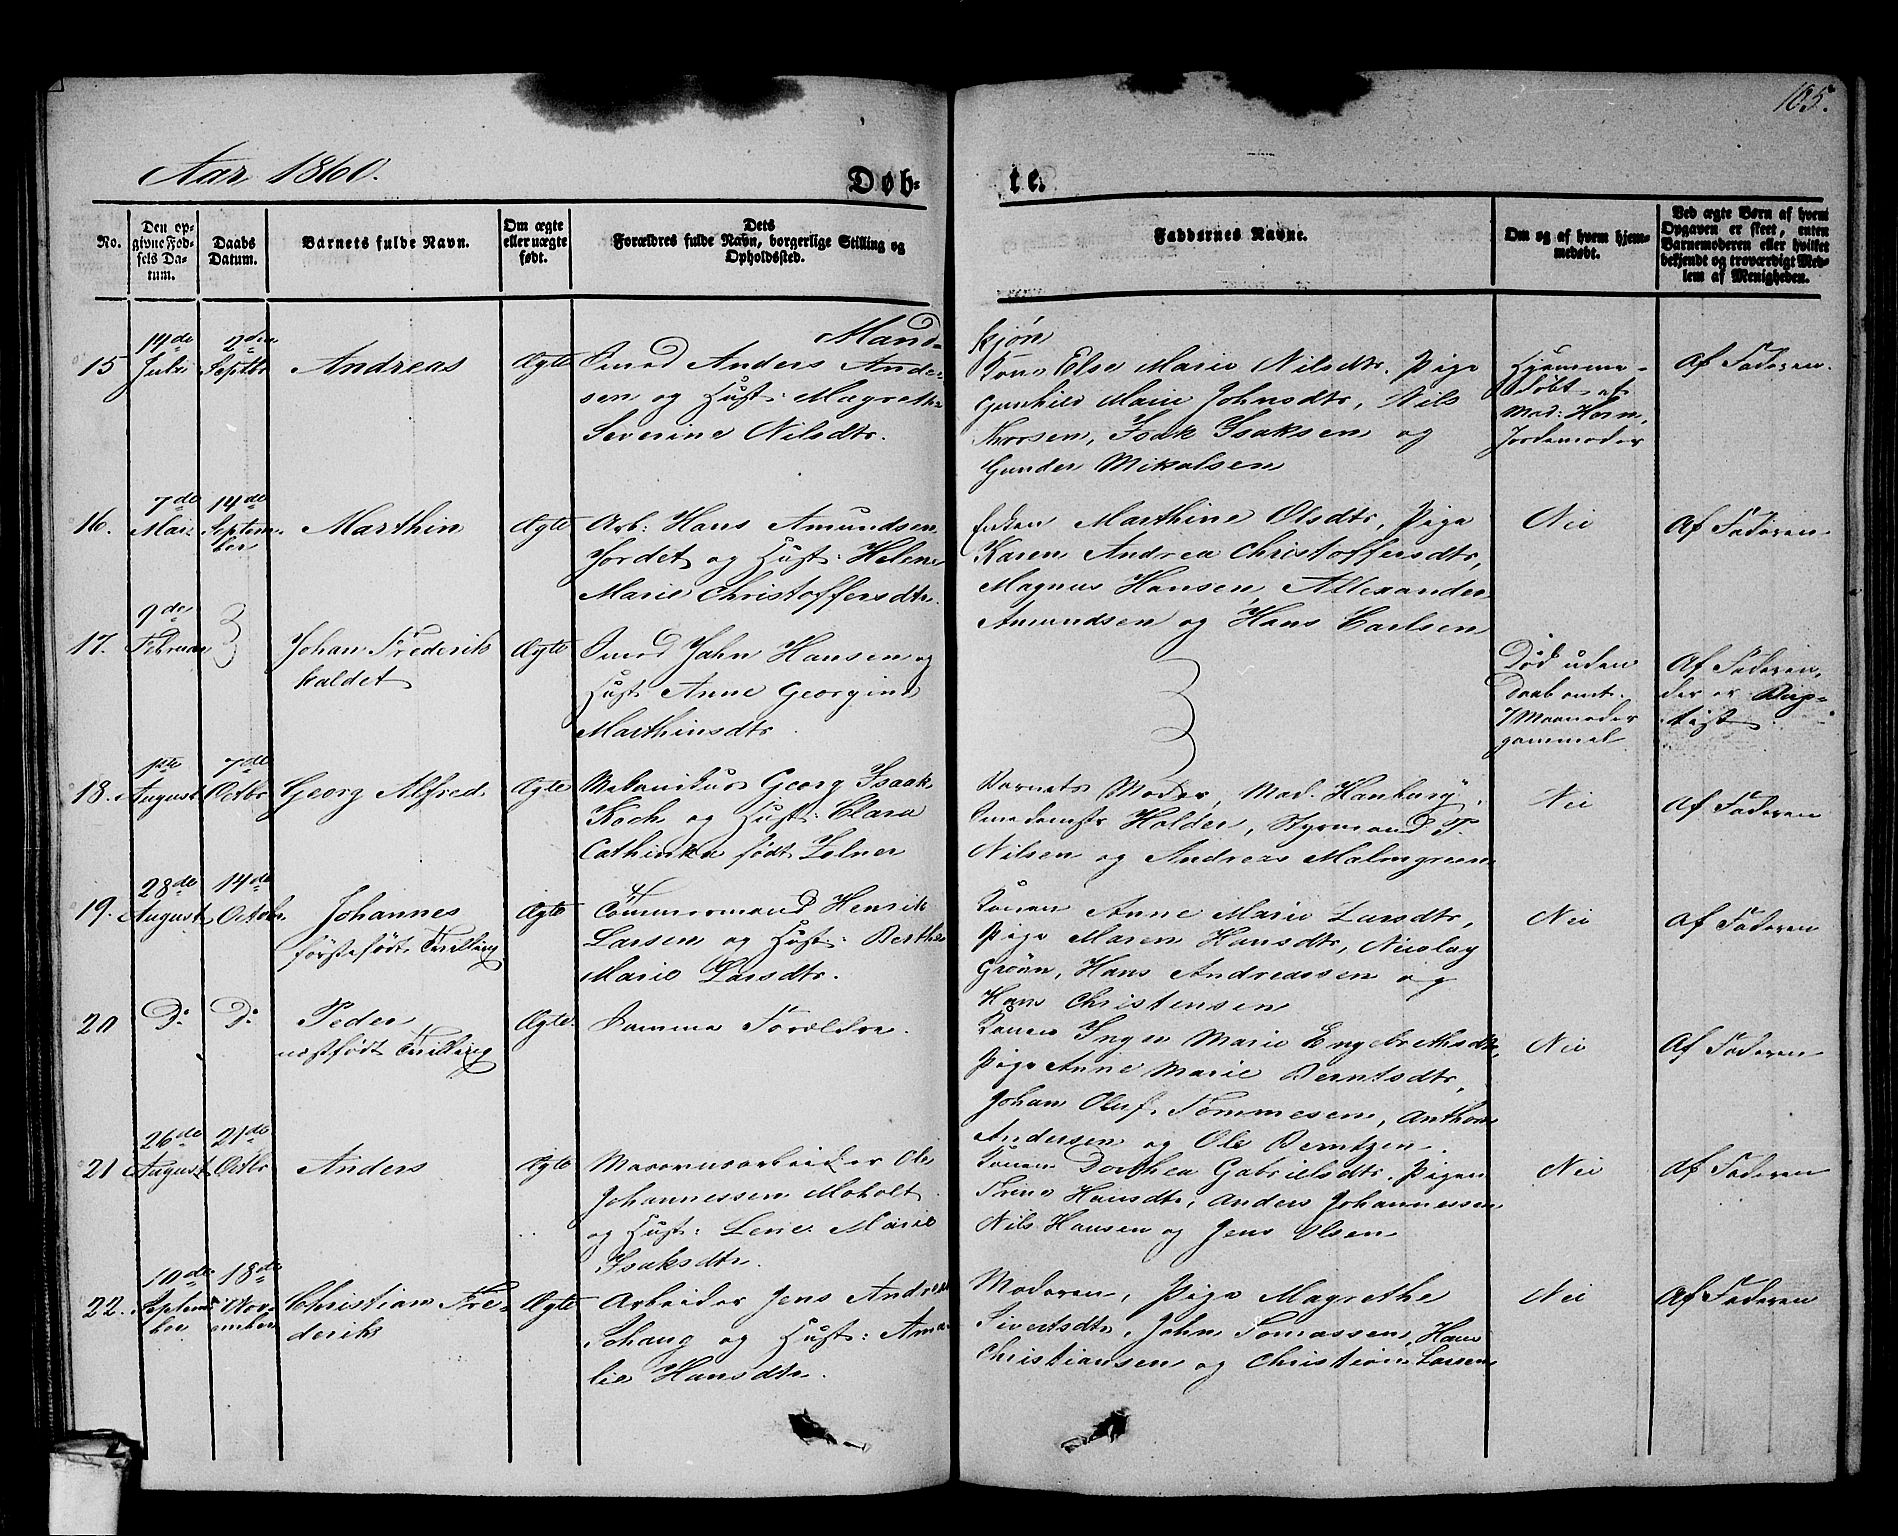 105.
Aar 1860.
Døb-
te.
No.
Den op-
givne Fød-
sels Da-
tum.
Daabs
Datum.
Barnets fulde Navn.
Om ægte
eller uægte
født.
Dets
Forældres fulde Navn, borgerlige Stilling og
Opholdssted.
Faddernes Navne.
Om og af hvem hjem-
medøbt.
Ved ægte Børn af hvem
Opgaven er skeet, enten
Barnemoderen eller hvilket
bekjendt og troværdigt Med-
lem af Menigheden.
Mand-
kjøn
15
19de
Juli
2den
Septbr
Andreas
Ægte
Smed Anders Ander-
sen og Hust: Magrethe
Severine Nilsdtr.
Kone Else Marie Nilsdtr. Pige
Gunhild Marie Johnsdtr, Nils
Thorsen, Isak Isaksen og
Gunder Mikalsen
Hjemme-
døbt af
Mad: Horn,
Jordemoder
Af Faderen.
16.
7de
Mai
14de
Septem-
ber
Marthin
Ægte
Arb: Hans Amundsen
Jordet og Hust: Helene
Marie Christoffersdtr.
Enken Marthine Olsdtr, Pige
Karen Andrea Christoffersdtr,
Magnus Hansen, Allexander
Amundsen og Hans Carlsen
Nei
Af Faderen
17.
9de
Februar
Johan Frederik
kaldet
Ægte
Smed John Hansen og
Hust: Anne Georgine
Marthinsdtr
Død uden
Daab omt.
7 Maaneder
gammel
Af Faderen,
der er Bap-
tist
18.
1ste
August
7de
Octbr
Georg Alfred
Ægte
Mekanikus Georg Isaak
Koch og Hust: Clara
Cathinka født Zelner
Barnets Moder, Mad. Hanburg
Smedemstr Holder, Styrmand T.
Nilsen og Andreas Malmgreen
Nei
Af Faderen
19.
28de
August
14de
Octobr.
Johannes
førstefødt Tvilling
Ægte
Tømmermand Henrik
Larsen og Hust: Berthe
Marie Larsdtr.
Konen Anne Marie Larsdtr,
Pige Maren Hansdtr, Nicolay
Grönn, Hans Andreassen og
Hans Christensen
Nei
Af Faderen
20
D:
D:
Peder
næstfødt Tvilling
Ægte.
Samme Forældre.
Konen Inger Marie Engebrethsdtr,
Pige Anne Marie Berntsdtr,
Johan Oluf Tommesen, Anthon
Andersen og Ole Berntzen.
Nei
Af Faderen
21
26de
August
21de
Octbr
Anders
Ægte
Maversarbeider Ole
Johannessen Moholt
og Hust: Lene Marie
Isaksdtr.
Konen Dorthea Gabrielsdtr, Pigen
Trine Hansdtr, Anders Johannessen
Nils Hansen og Jens Olsen
Nei
Af Faderen
22.
10de
Septem-
ber
18de
Nov-
ember
Christian Fre-
derik
Ægte
Arbeider Jens Andr
Schaug og Hust: Ama-
lie Hansdtr.
Moderen, Pige Magrethe
Sivertsdtr, John Tomassen, Hans
Christiansen og Christian Larsen
Nei
Af Faderen